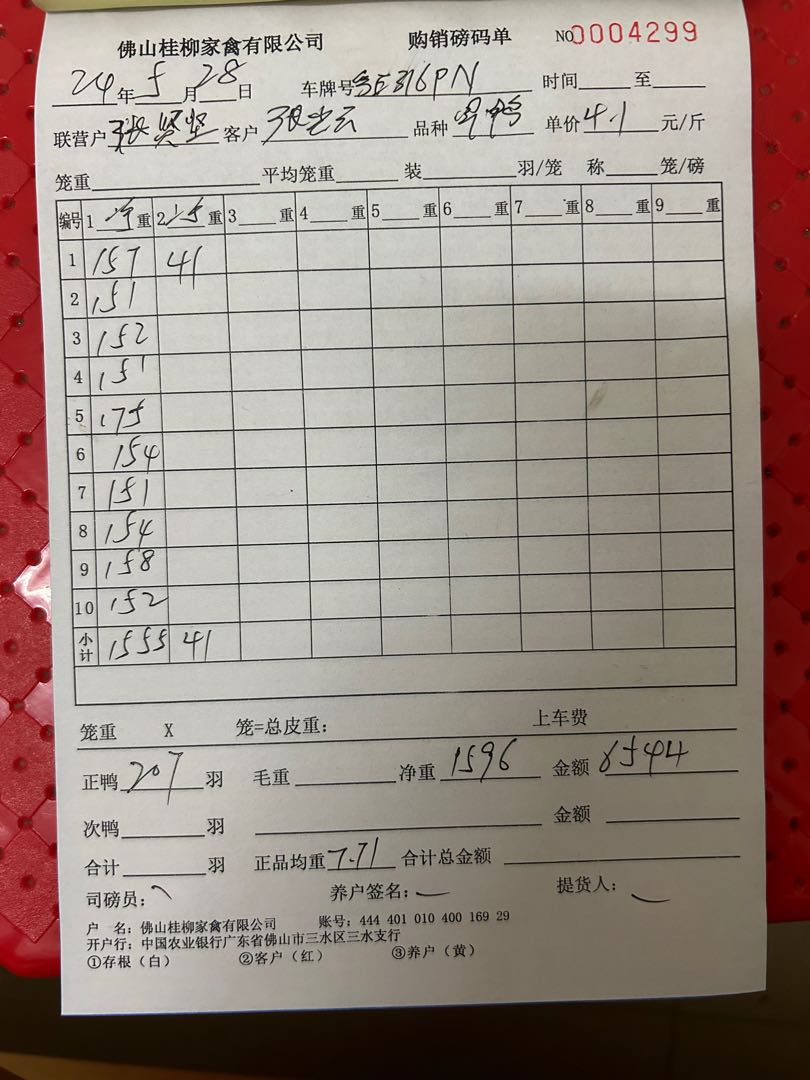 佛山桂柳家禽有限公司 购销磅码单 NO 0004299
24年5月28日 车牌号 E316PN 时间 至
联营户 张贤坚 客户 张 云 品种 鸭 单价 4.1 元/斤
笼重 平均笼重 装 羽/笼 称 笼/磅
编号 1 净重 2 重 3 重 4 重 5 重 6 重 7 重 8 重 9 重
1 157 41
2 151
3 152
4 151
5 175
6 154
7 151
8 154
9 158
10 152
小计 1555 41
笼重 X 笼=总皮重: 上车费
正鸭 207 羽 毛重 净重 1596 金额 6544
次鸭 羽 金额
合计 羽 正品均重 7.71 合计总金额
司磅员: 养户签名: 提货人:
户 名: 佛山桂柳家禽有限公司 账号: 444 401 010 400 169 29
开户行: 中国农业银行广东省佛山市三水区三水支行
①存根(白) ②客户(红) ③养户(黄)